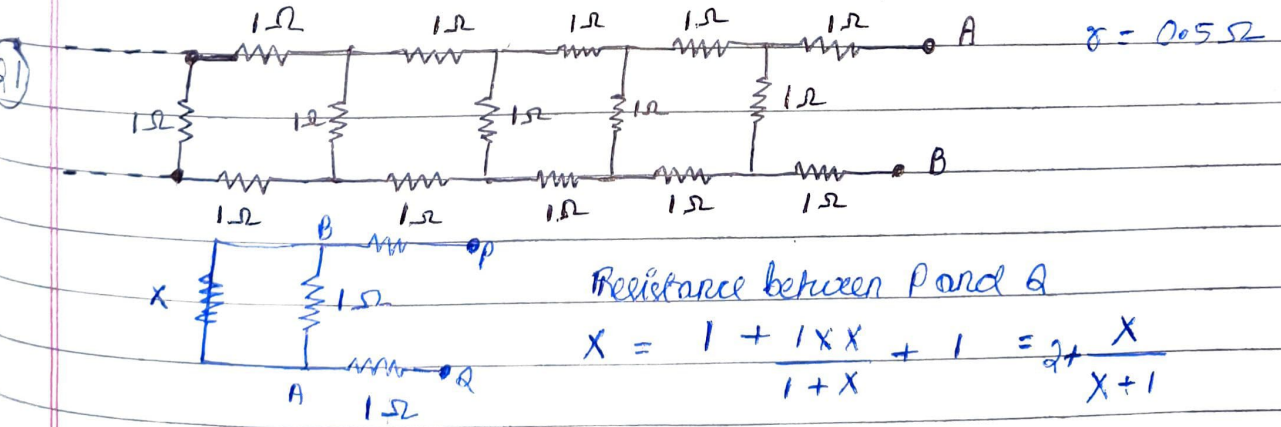 1Ω 1Ω 1Ω 1Ω 1Ω A r = 0.5Ω
1Ω 1Ω 1Ω 1Ω 1Ω
B
1Ω 1Ω 1Ω 1Ω 1Ω
B P
X 1Ω Resistance between P and Q
X = 1 + 1×X / 1+X + 1 = 2+ X / X+1
A 1Ω Q